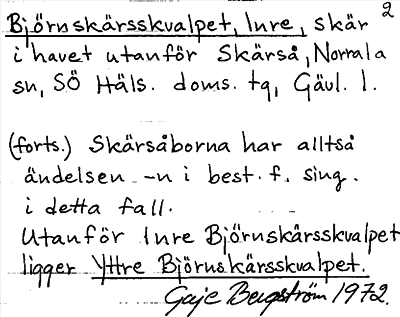 Björnskärsskvalpet, Inre, skär 2
i havet utanför Skärså, Norrala
sn, SÖ Häls. doms. tg, Gävl. l.
(forts.) Skärsåborna har alltså
ändelsen -n i best. f. sing.
i detta fall.
Utanför Inre Björnskärsskvalpet
ligger Yttre Björnskärsskvalpet.
Gaje Bergström 1972.